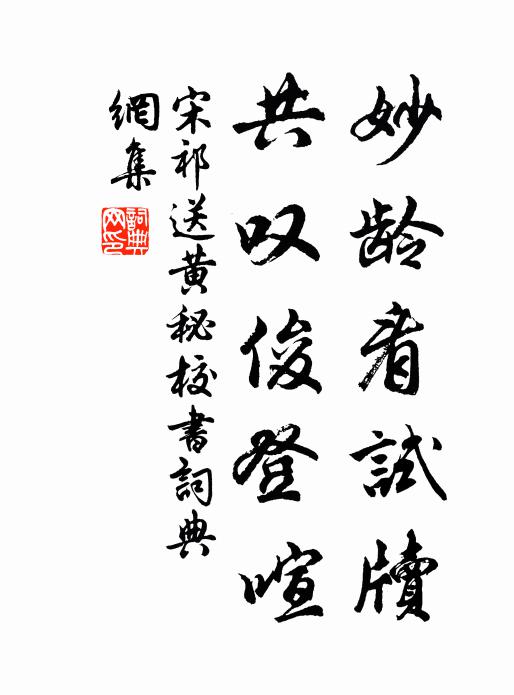 妙龄看試牘
共叹俊登喧
宋祁送黄秘校書詞典
網集
詞典網印